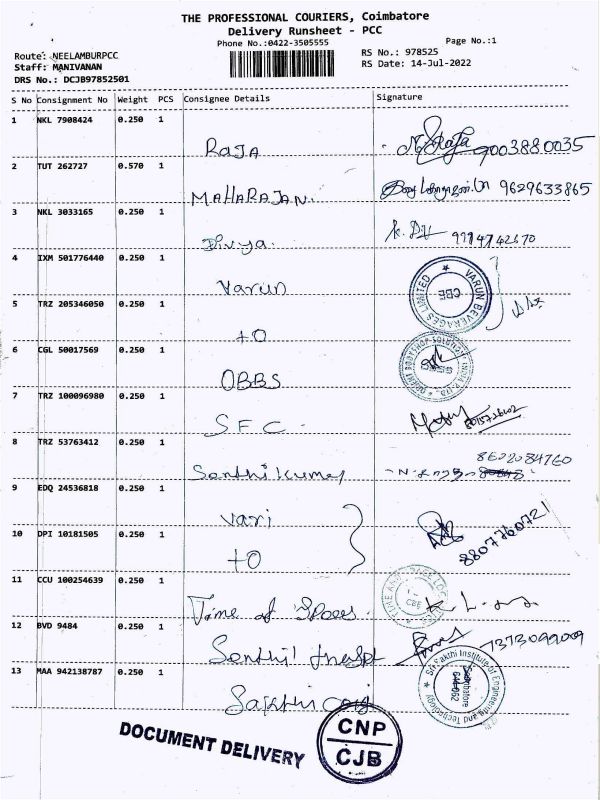 THE PROFESSIONAL COURIERS, Coimbatore
Delivery Runsheet - PCC
Phone No.:0422-3505555
Page No.:1
Route: NEELAMBURPCC
RS No.: 978525
Staff: MANIVANAN
RS Date: 14-Jul-2022
DRS No.: DCJB97852501
S No Consignment No Weight PCS Consignee Details Signature
1 NKL 7908424 0.250 1
RAJA 9003880035
2 TUT 262727 0.570 1
MAHARAJAN. 9629633865
3 NKL 3033165 0.250 1
Divya.
4 IXM 501776440 0.250 1
Varun
VARUN BEVERAGES LIMITED
CBE
5 TRZ 205346050 0.250 1
to
6 CGL 50017569 0.250 1
OBBS
7 TRZ 100096980 0.250 1
SFC
8 TRZ 53763412 0.250 1
Senthil Kumar
9 EDQ 24536818 0.250 1
Vari
10 DPI 10181505 0.250 1
to
8807760721
11 CCU 100254639 0.250 1
Time of Spaces
CBE
12 BVD 9484 0.250 1
Senthil
13 MAA 942138787 0.250 1
Sri Sakthi Institute of Engineering and Technology
Coimbatore
641 062
DOCUMENT DELIVERY
CNP
CJB